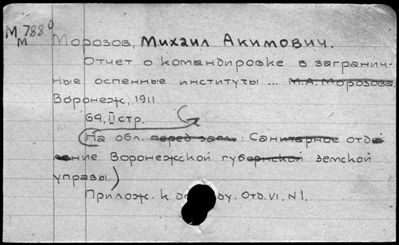 М 788 0
М
Морозов, Михаил Акимович.
Отчет о командировке в загранич-
ные оспенные институты ... М.А. Морозова.
Воронеж, 1911
64, II стр.
(На обл. перед загл.: Санитарное отде
ление Воронежской губернской земской
управы.)
Прилож. к Отд. VI, N1.